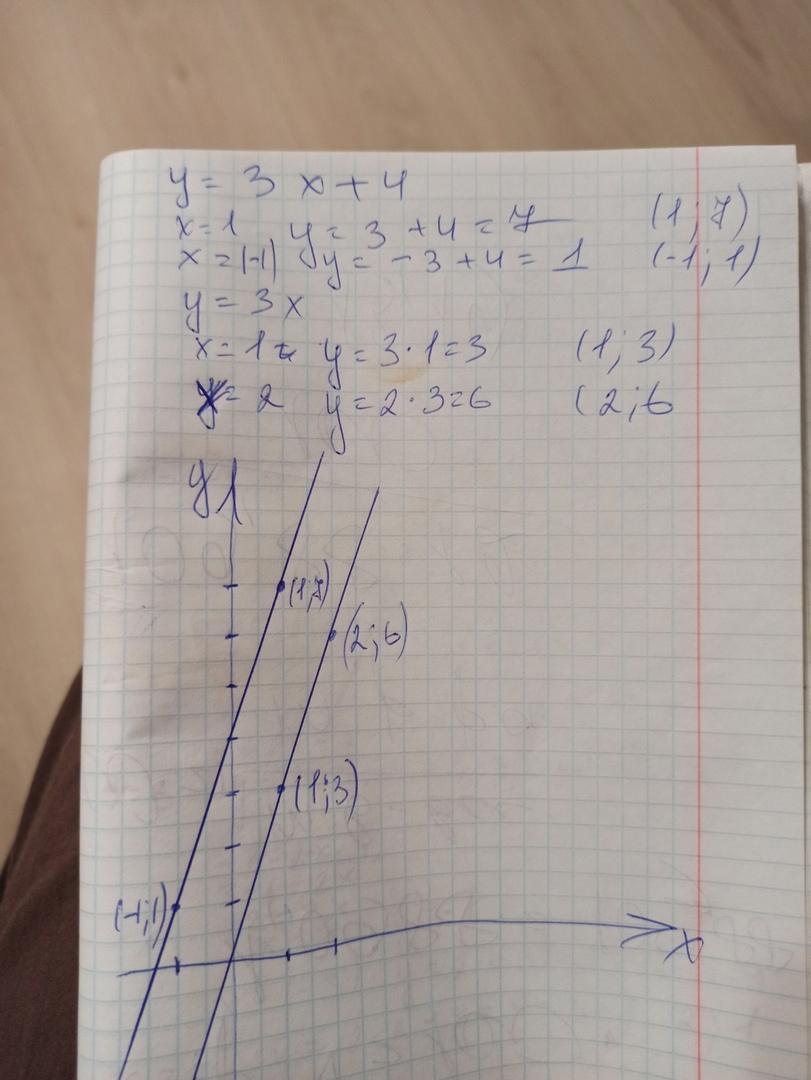 y = 3x + 4
x = 1 y = 3 + 4 = 7 (1; 7)
x = (-1) y = -3 + 4 = 1 (-1; 1)
y = 3x
x = 1 y = 3·1 = 3 (1; 3)
x = 2 y = 2·3 = 6 (2; 6
y
(1;7)
(2;6)
(1;3)
(-1;1)
x